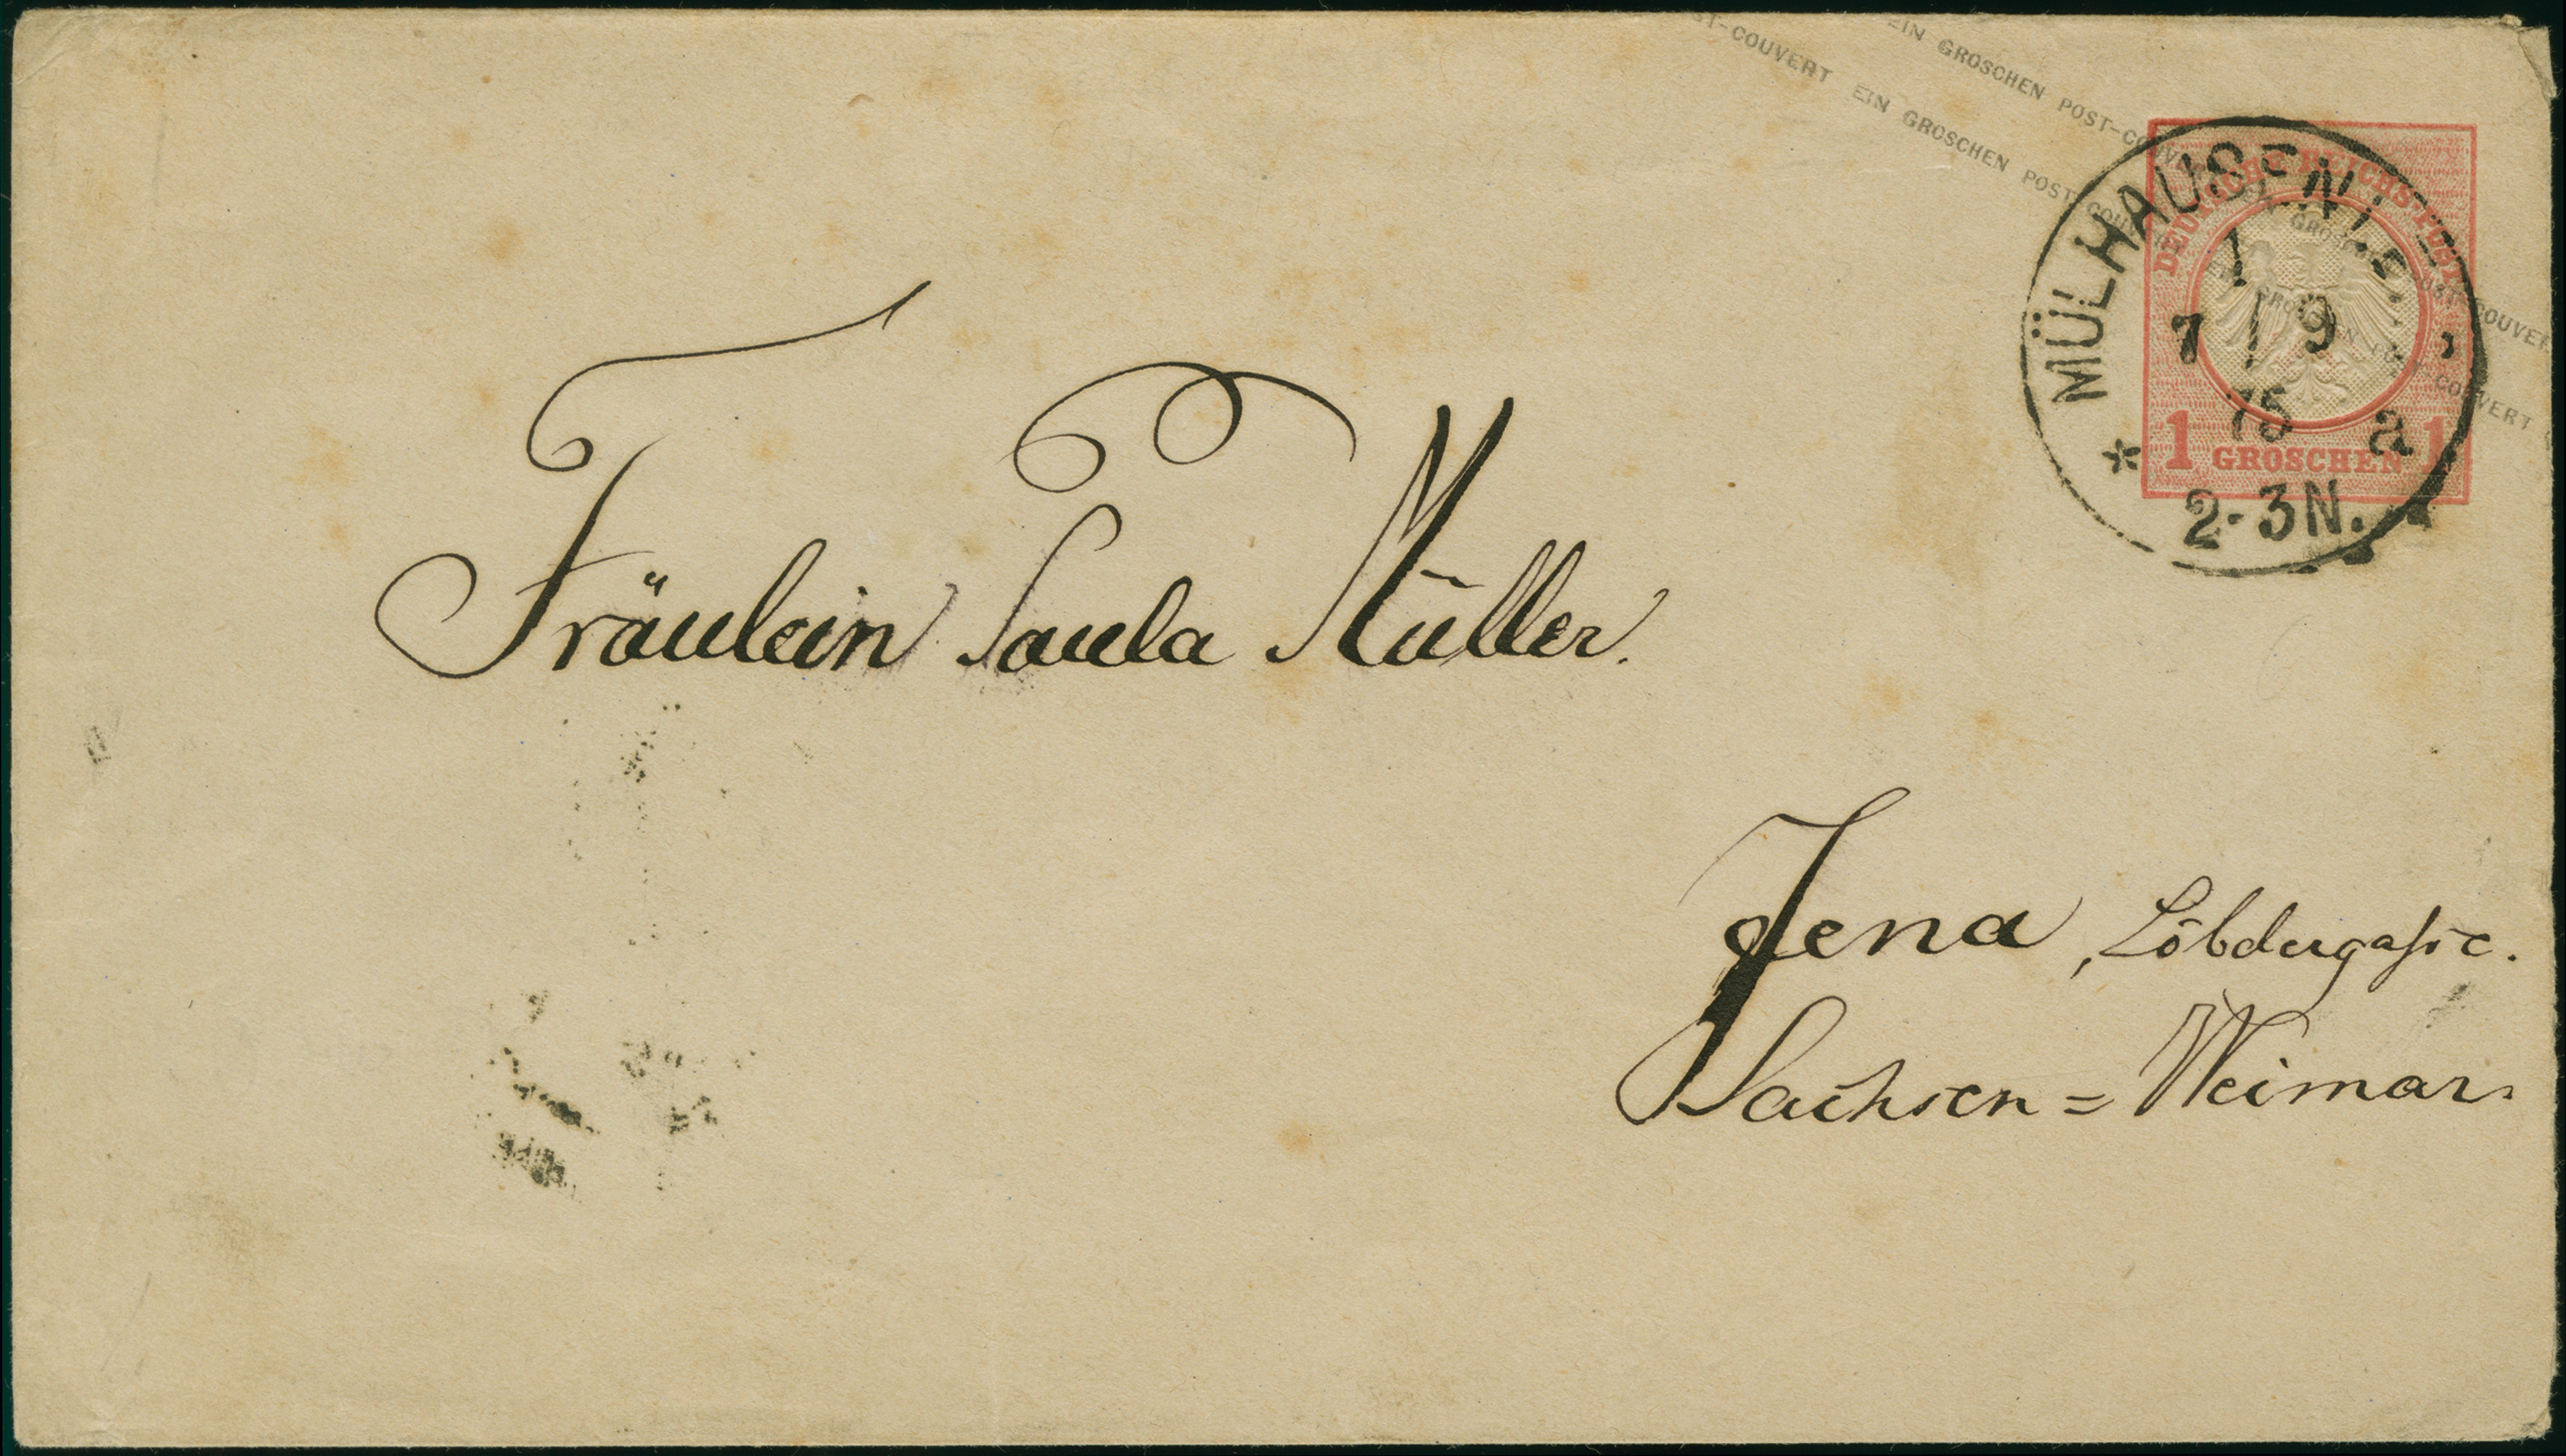 ST-COUVERT EIN GROSCHEN POST-COUVERT
EIN GROSCHEN POST-COUVERT
DEUTSCHE REICHS-POST
MÜLHAUSEN I. E.
1
7 9
75 a
1 GROSCHEN 1
2-3N.
Fräulein Paula Müller.
Jena, Löbdergasse.
Sachsen = Weimar.